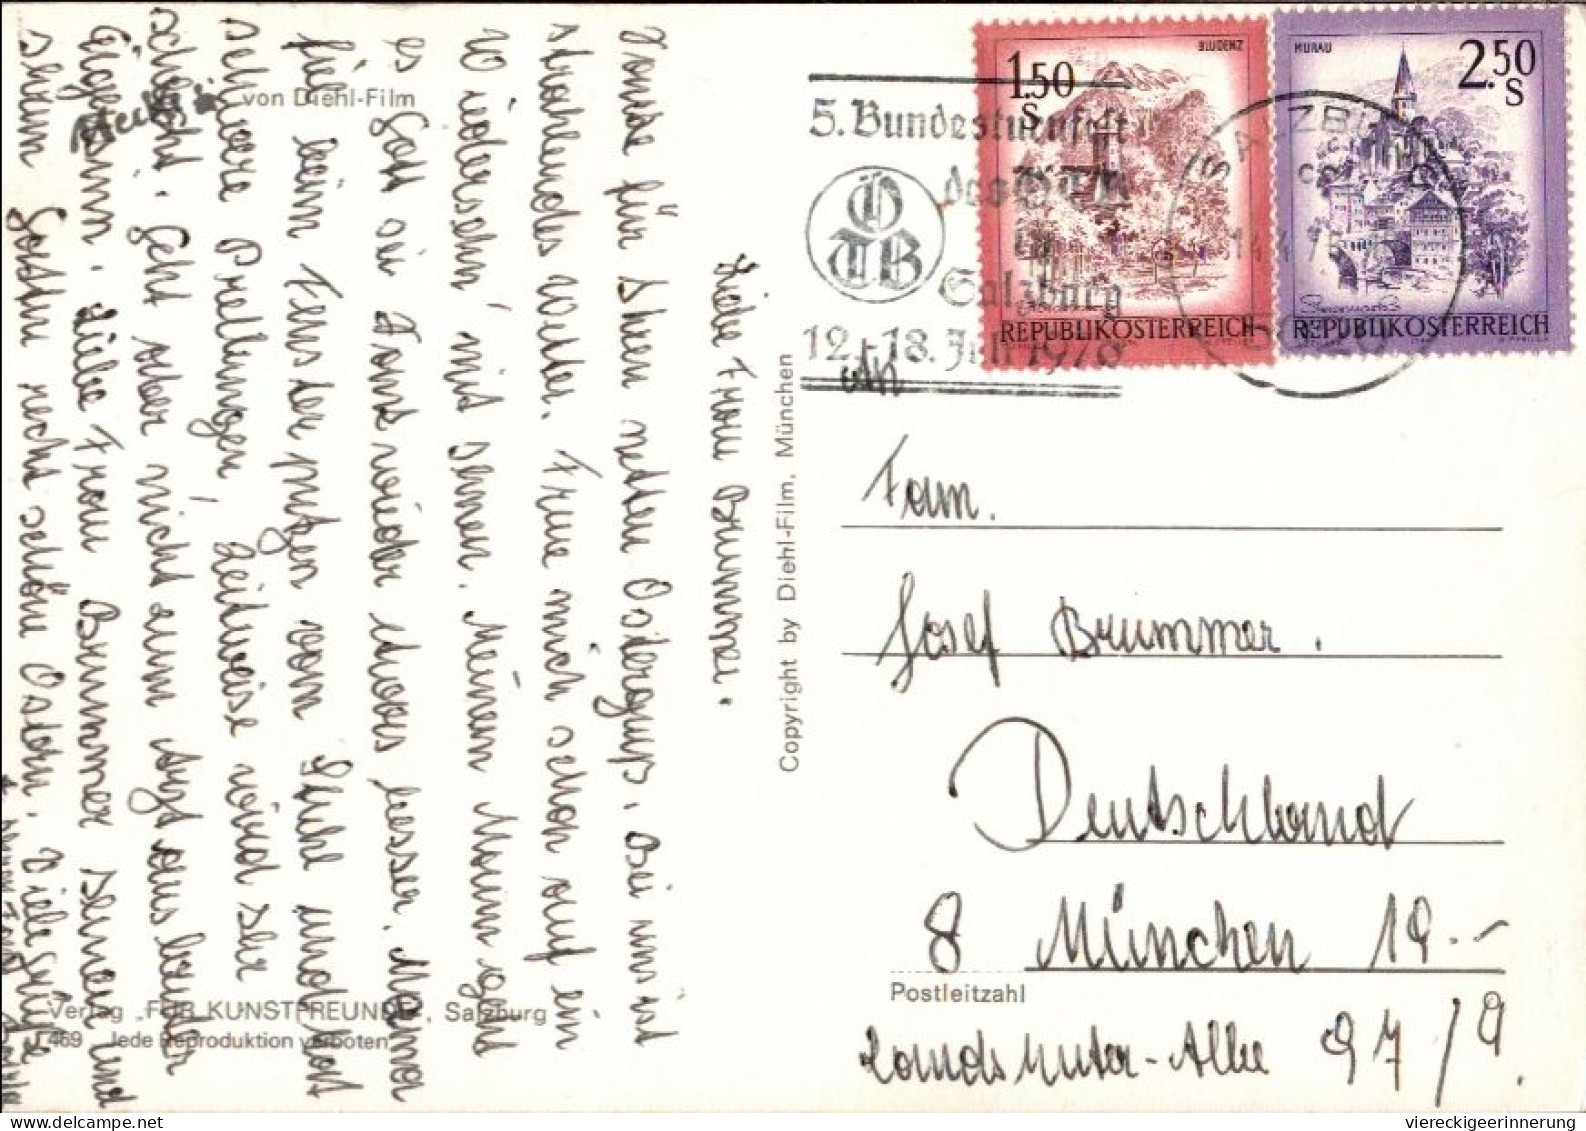 Mecki's
von Diehl-Film
Liebe Frau Brummer.
Danke für Ihren netten Ostergruß. Bei uns ist
strahlendes Wetter. Freue mich schon auf ein
Wiedersehn' mit Ihnen. Meinem Mann geht
es Gott sei Dank wieder etwas besser. Mama
fiel beim Fenster putzen vom Stuhl und hat
schwere Prellungen, zeitweise wird ihr
schlecht. Geht aber nicht zum Arzt aus lauter
Eigensinn. Liebe Frau Brummer Ihnen und
Ihren Lieben recht schöne Ostern. Viele Grüße
Verlag „FÜR KUNSTFREUNDE", Salzburg
469 Jede Reproduktion verboten
Copyright by Diehl-Film, München
5. Bundesturnfest
des ÖTB
in
Salzburg
12.-18. Juli 1976
ÖTB
SALZBURG
5020
BLUDENZ
1.50
S
REPUBLIK ÖSTERREICH
MURAU
2.50
S
REPUBLIK ÖSTERREICH
Fam.
Josef Brummer.
Deutschland
8 München 19.-
Postleitzahl
Landshuter-Allee 97/9.
viereckigeerinnerung